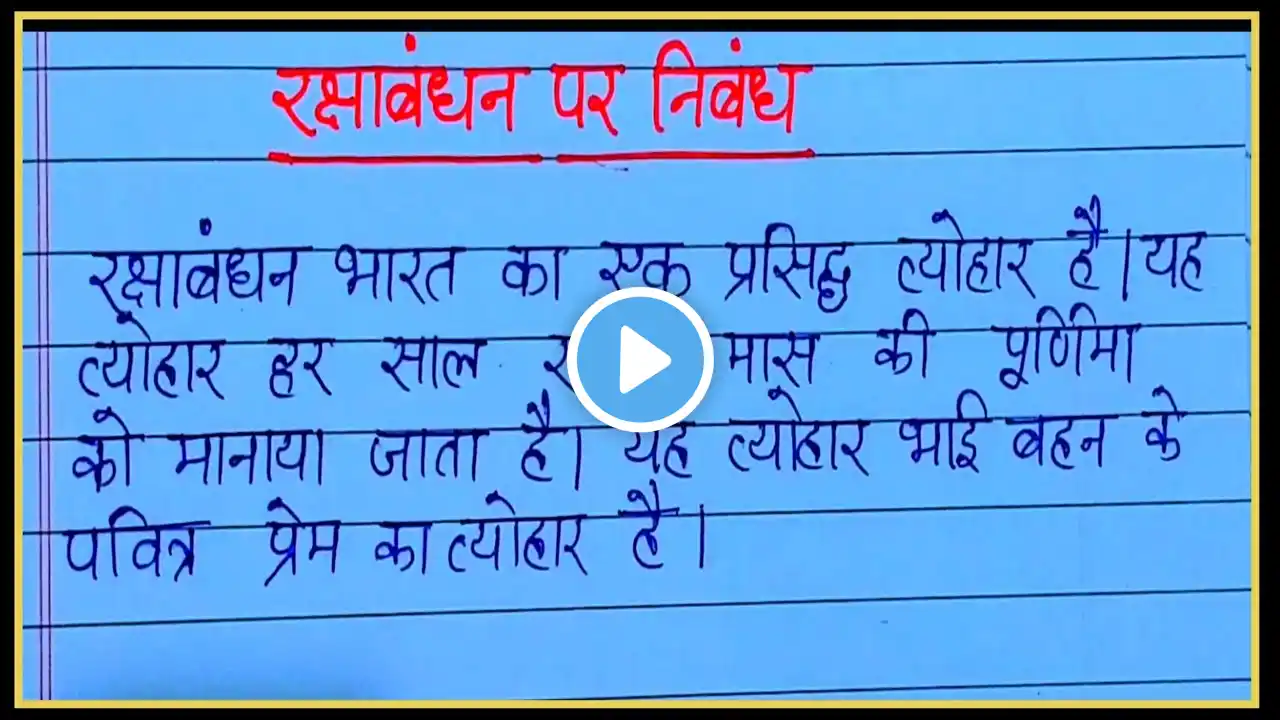 रक्षाबंधन पर निबंध
रक्षाबंधन भारत का एक प्रसिद्ध त्योहार है। यह
त्योहार हर साल मास की पूर्णिमा
को मानाया जाता है। यह त्योहार भाई बहन के
पवित्र प्रेम का त्योहार है।